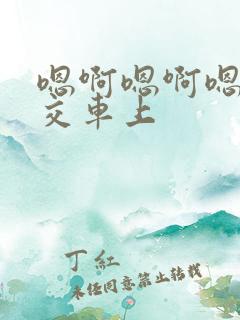 嗯啊嗯啊嗯
交车上
丁红
未经同意禁止转载